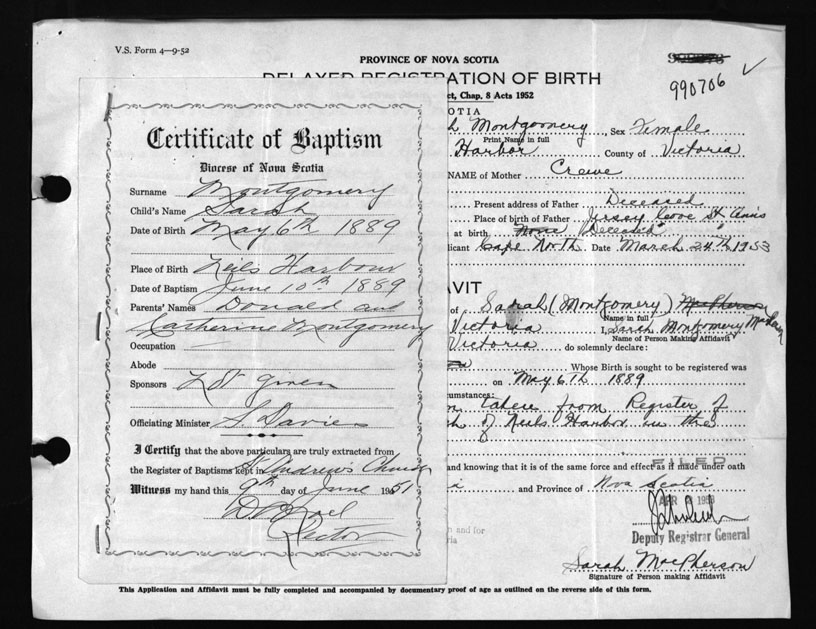 V.S. Form 4—9-52
PROVINCE OF NOVA SCOTIA
DELAYED REGISTRATION OF BIRTH
990706
ct, Chap. 8 Acts 1952
OTIA
h Montgomery, Sex Female
Print Name in full
Harbor County of Victoria
NAME of Mother Crewe
Present address of Father Deceased
Place of birth of Father Jersey Cove St Anns
at birth None Deceased
licant Cape North Date March 24th 1953
Certificate of Baptism
Diocese of Nova Scotia
Surname Montgomery
Child's Name Sarah
Date of Birth May 6th 1889
Place of Birth Neils Harbour
Date of Baptism June 10th 1889
Parents' Names Donald and
Katherine Montgomery
Occupation
Abode
Sponsors
Officiating Minister S. Davies
I Certify that the above particulars are truly extracted from
the Register of Baptisms kept in St Andrew's Church
Witness my hand this 9th day of June 1951
Rector
VIT
of Sarah (Montgomery) MacPherson
Name in full
Victoria I, Sarah Montgomery MacPherson
Name of Person Making Affidavit
Victoria do solemnly declare:
Whose Birth is sought to be registered was
on May 6th 1889
cumstances:
n taken from Register of
ch of Neils Harbor in the
and knowing that it is of the same force and effect as if made under oath
FILED
ia and Province of Nova Scotia
APR 1953
Deputy Registrar General
n and for
ria
Sarah MacPherson
Signature of Person making Affidavit
This Application and Affidavit must be fully completed and accompanied by documentary proof of age as outlined on the reverse side of this form.